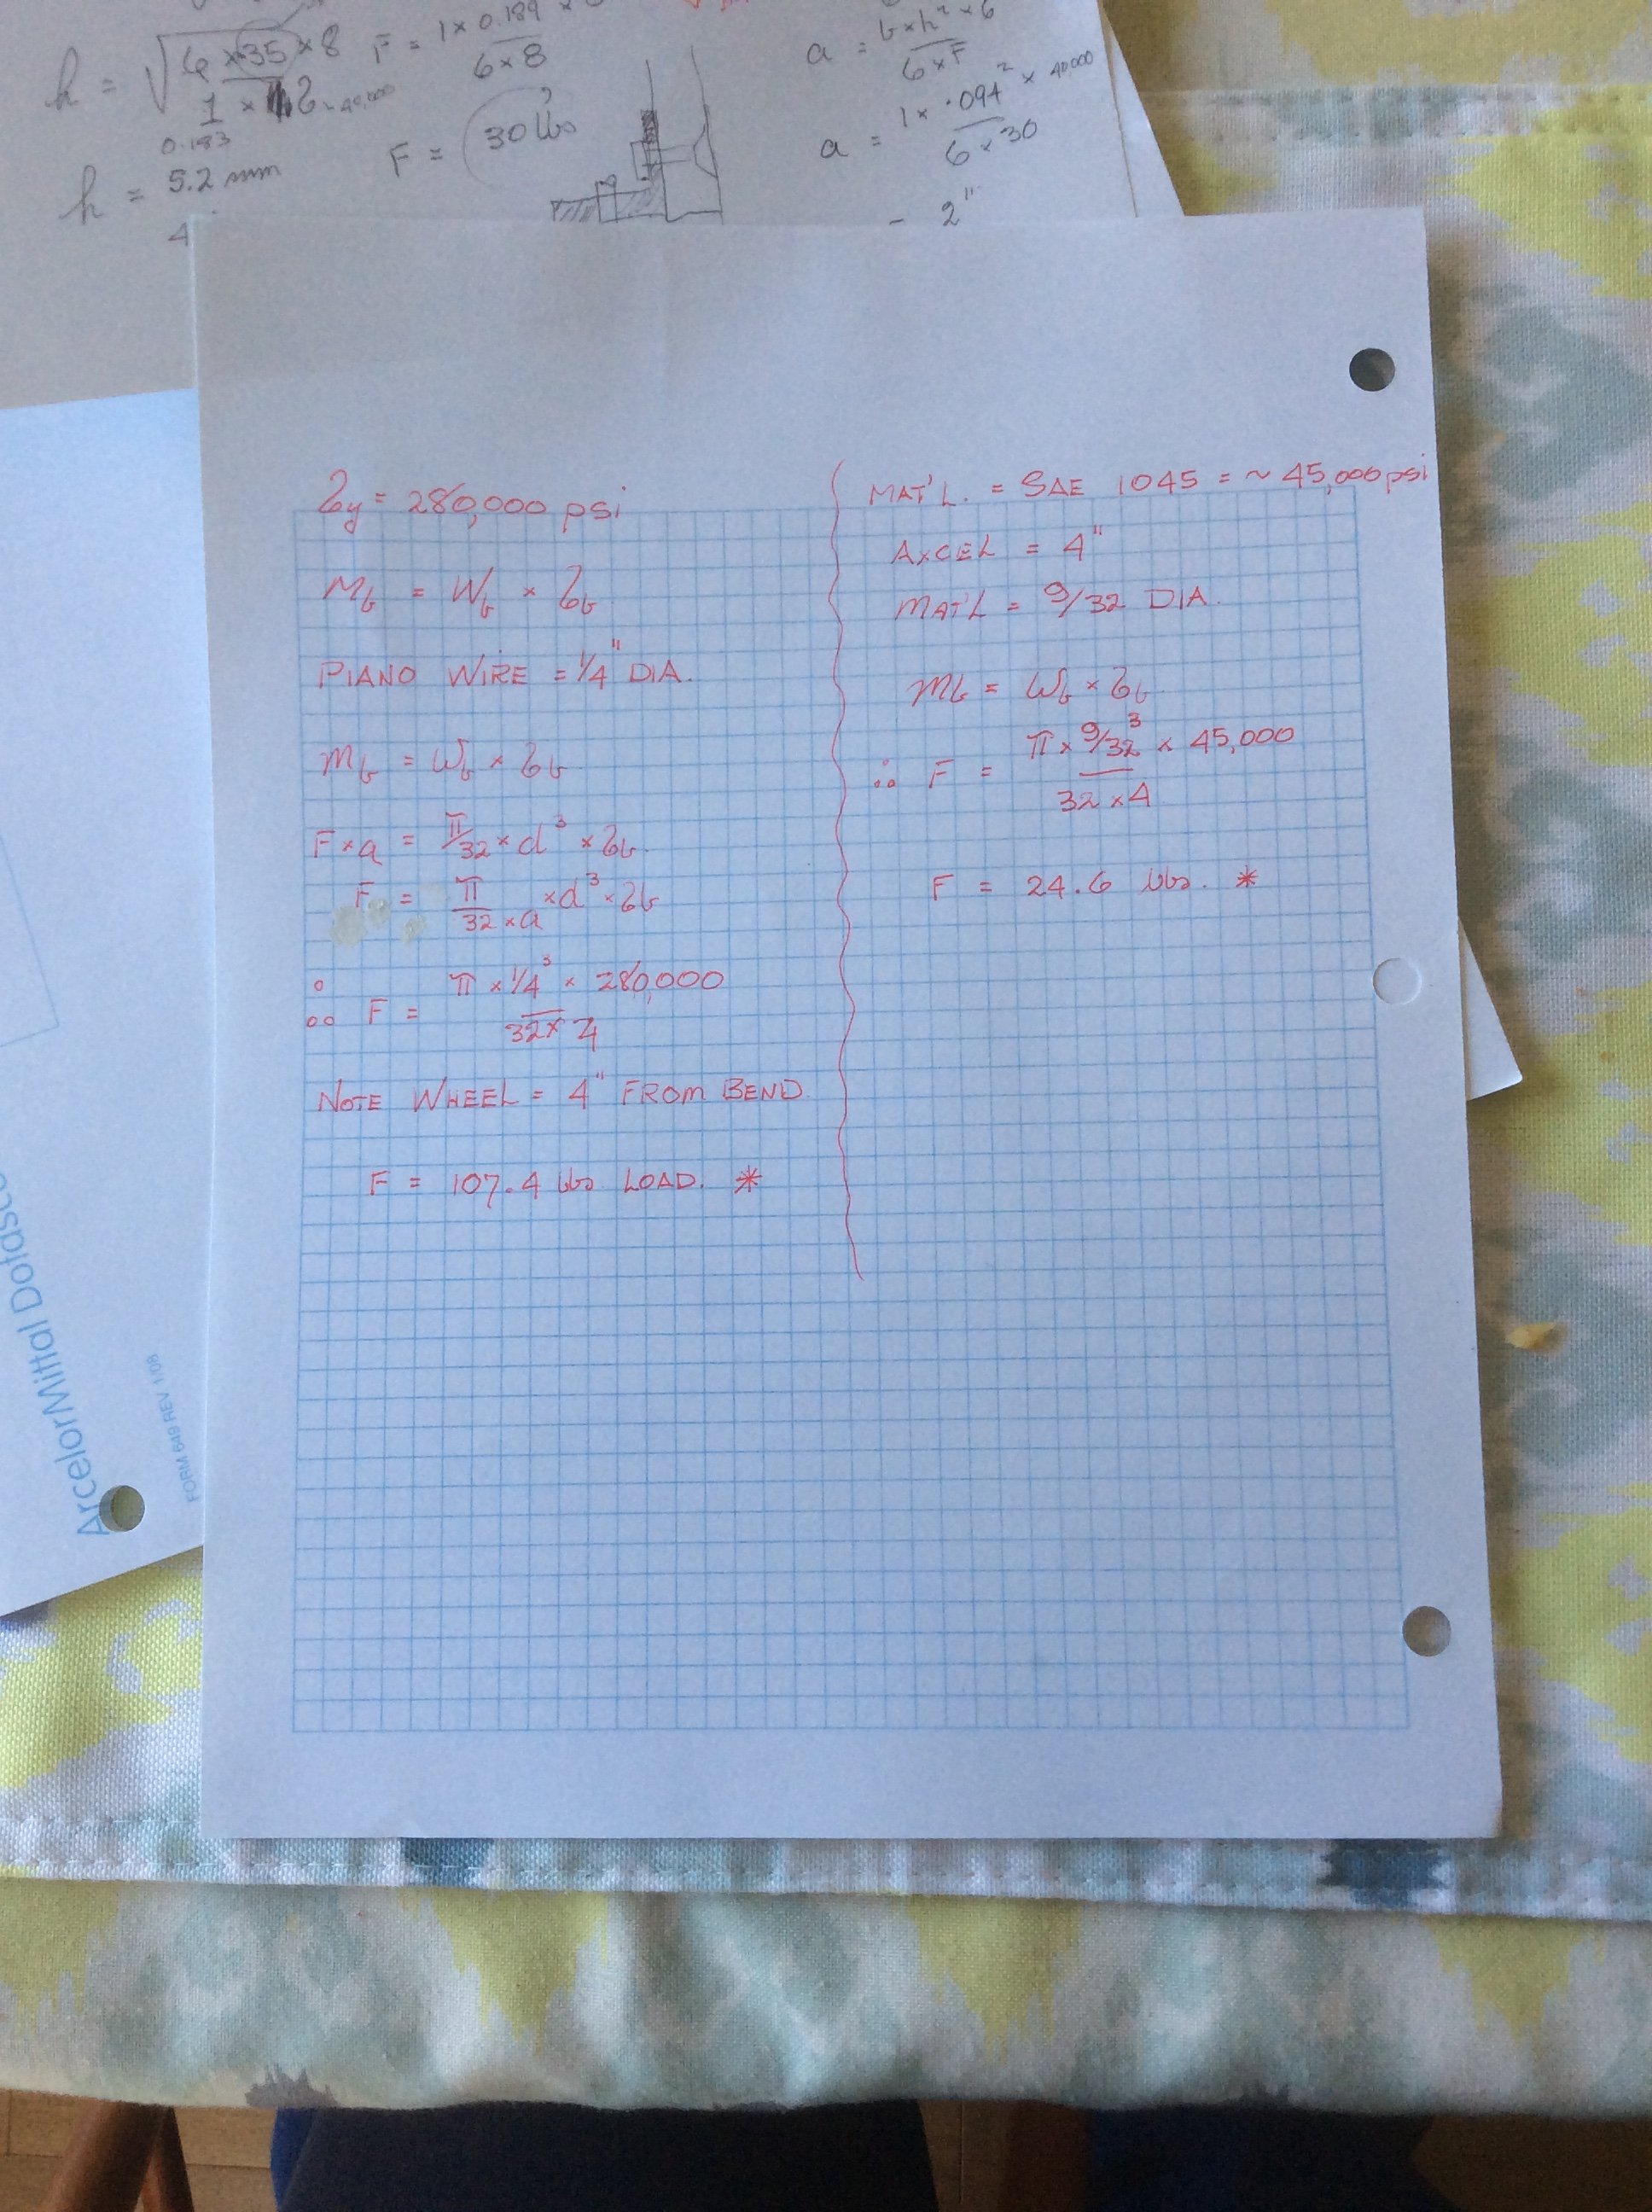 h = √ 6 × 35 × 8
1 × 2 ~ 40,000
0.183
h = 5.2 mm
F = 1 × 0.189 ×
6 × 8
F = 30 lbs
a = b × h² × б
6 × F
a = 1 × .094² × 40,000
6 × 30
2"
бy = 280,000 psi
Mb = Wb × бb
PIANO WIRE = 1/4" DIA.
Mb = Wb × бb
F × a = π/32 × d³ × бb
F = π × d³ × бb
32 × a
∴ F = π × 1/4³ × 280,000
32 × 4
NOTE WHEEL = 4" FROM BEND
F = 107.4 lbs LOAD. *
MAT'L. = SAE 1045 = ~ 45,000 psi
AXCEL = 4"
MAT'L = 9/32 DIA.
Mb = Wb × бb
∴ F = π × 9/32³ × 45,000
32 × 4
F = 24.6 lbs. *
ArcelorMittal Dofasco
FORM 649 REV 1/08